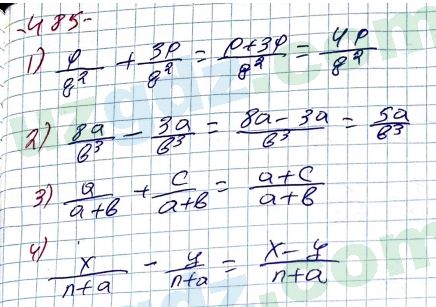 -485-
1) p/g² + 3p/g² = p+3p/g² = 4p/g²
2) 8a/b³ - 3a/b³ = 8a-3a/b³ = 5a/b³
3) a/a+b + c/a+b = a+c/a+b
4) x/n+a - y/n+a = x-y/n+a